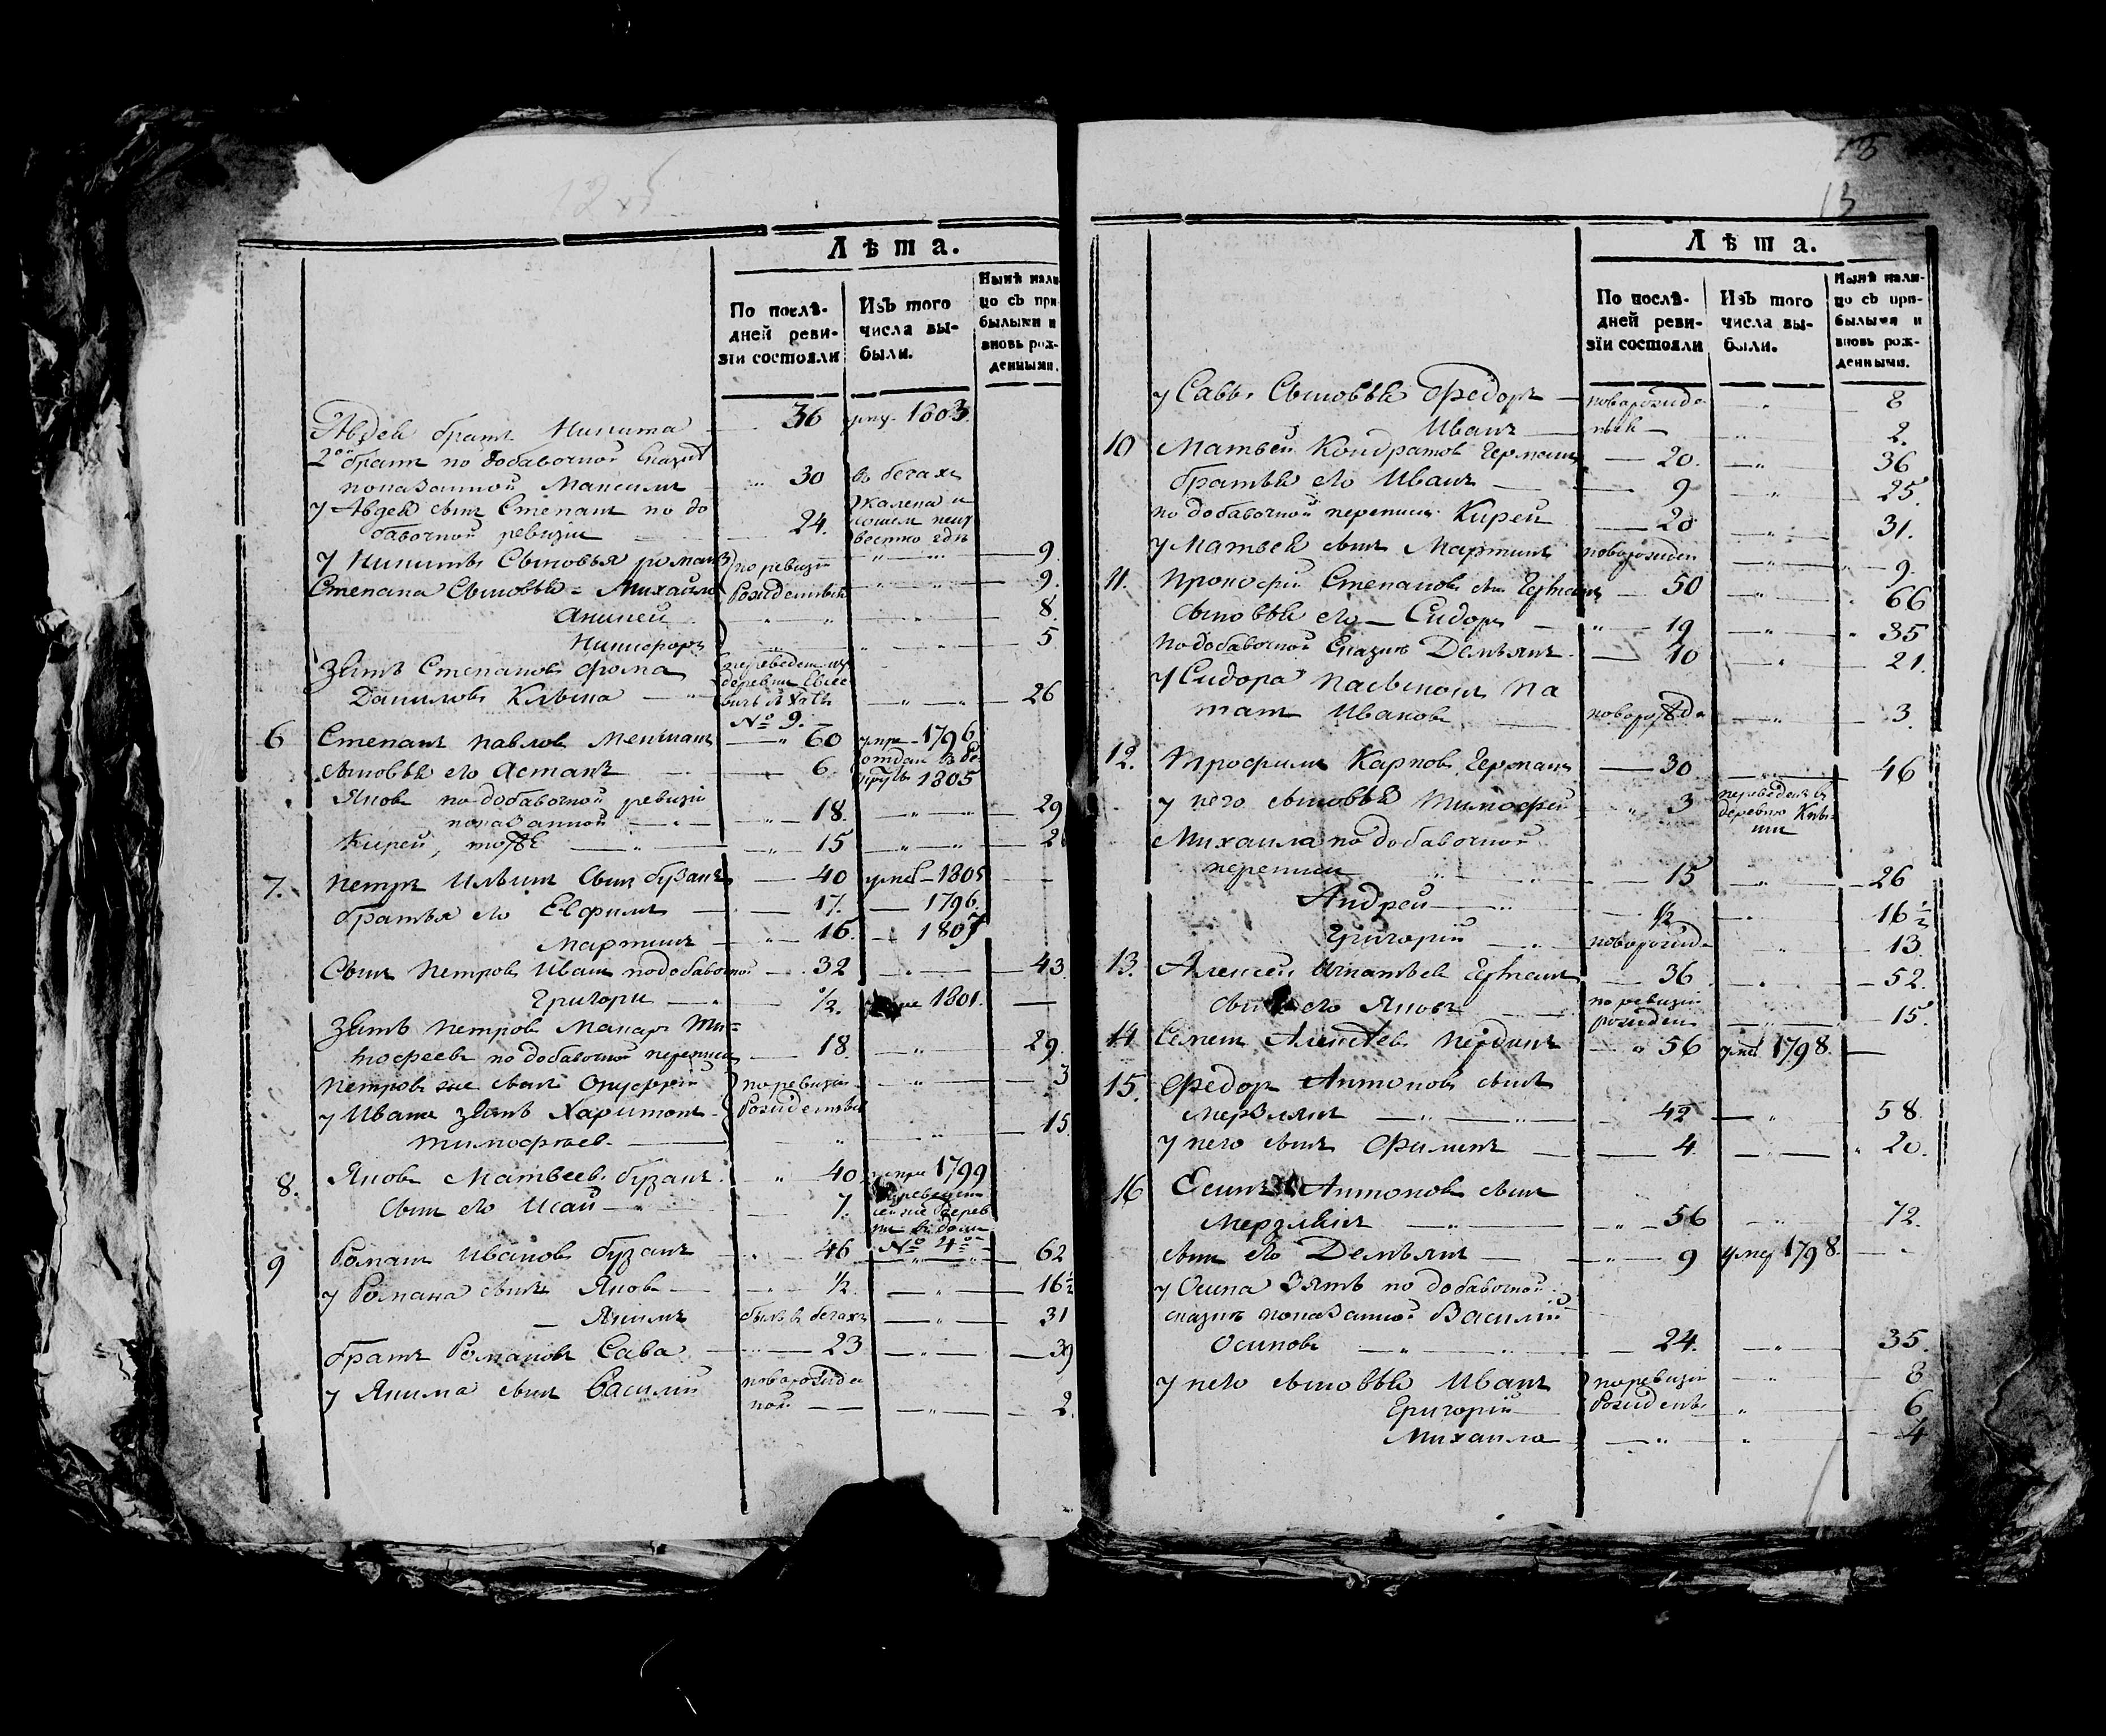 Лѣта.
По послѣ-
дней реви-
зіи состояли
Изъ того
числа вы-
были.
Нынѣ нали
цо съ при
былыми и
вновь рож-
денными.
Авдея братъ Никита — 36 1803.
2ой братъ по добавочной сказкѣ
показанной Максимъ 30 въ бегахъ
у Авдея сынъ Степанъ по до
бавочной ревизіи 24.
у Никиты сыновья романъ по ревизіи 9
Степана сыновья = Михайла рожденныя 9.
Ананей 8.
Никифоръ 5
Зять Степановъ Фома
Даниловъ 26
№ 9.
6 Степанъ павловъ — 60 умре 1796
сыновья его Астапъ — 6 отдан в ре
круты 1805
Яковъ по добавочной ревизіи
показанной — 18. — 29
Кирей, тоже — 15
7. петръ ильинъ сынъ бузанъ — 40 умеръ 1805
братья его Евфимъ — 17. — 1796.
мартинъ — 16.
Сынъ петровъ Иванъ по добавочной — 32 — 43.
Григори — ½. 1801. —
Зять петровъ макаръ ти=
мофеевъ по добавочной переписи — 18. — 29.
петровъ же сынъ по ревизіи — 3
у Ивана зять Харитонъ рожденныя
тимофѣевъ — 15.
8. Яковъ Матвеевъ бузанъ — 40 умре 1799
сынъ его Исай — 7.
№ 4
9 Романъ Ивановъ бузанъ — 46 — 62
у Романа сынъ Яковъ — ½. — 16½
— Якимъ былъ в бегахъ — 31
братъ Романовъ Сава — 23 — 39
у Якима сынъ Василій новорожде
ной — — 2.
13
13
Лѣта.
По послѣ-
дней реви-
зіи состояли
Изъ того
числа вы-
были.
Нынѣ нали-
цо съ при-
былыми и
вновь рож-
денными.
у Савы сыновья Федоръ — новорожде — 8
Иванъ — 2.
10 Матвей Кондратовъ Германъ — 20. — 36
братья его Иванъ — 9 — 25.
по добавочной переписи Кирей — 20 — 31.
у Матвея сынъ Мартинъ новорожден — 9.
11. прокофій Степановъ сынъ Германъ — 50 — 66
сыновья его — Сидоръ — 19 — 35
по добавочной сказкѣ Демьянъ — 10 — 21.
у Сидора пасынокъ па
Ивановъ новорожде — 3
12. Трофимъ Карповъ Германъ — 30 — 46
у него сыновья тимофей — 3 переведенъ в
деревню
Михаила по добавочной
переписи — 15 — 26
Андрей — ½ — 16½
Григорій — новорожд — 13
13. Алексей Игнатьев Германъ — 36 — 52.
сынъ его Яковъ по ревизіи
рожден — 15.
14 Семенъ — 56 умеръ 1798. —
15. Федоръ Антоновъ сынъ
мерзлякъ — 42 — 58.
у него сынъ Филипъ — 4. — 20.
16 Есипъ Антоновъ сынъ
мерзлякъ — 56 — 72.
сынъ его Демьянъ — 9 умер 1798. —
у Осипа зять по добавочной
сказкѣ показанной Василій
Осиповъ — 24. — 35.
у него сыновья Иванъ по ревизіи — 8
Григорій рожденъ — 6
Михаила — 4